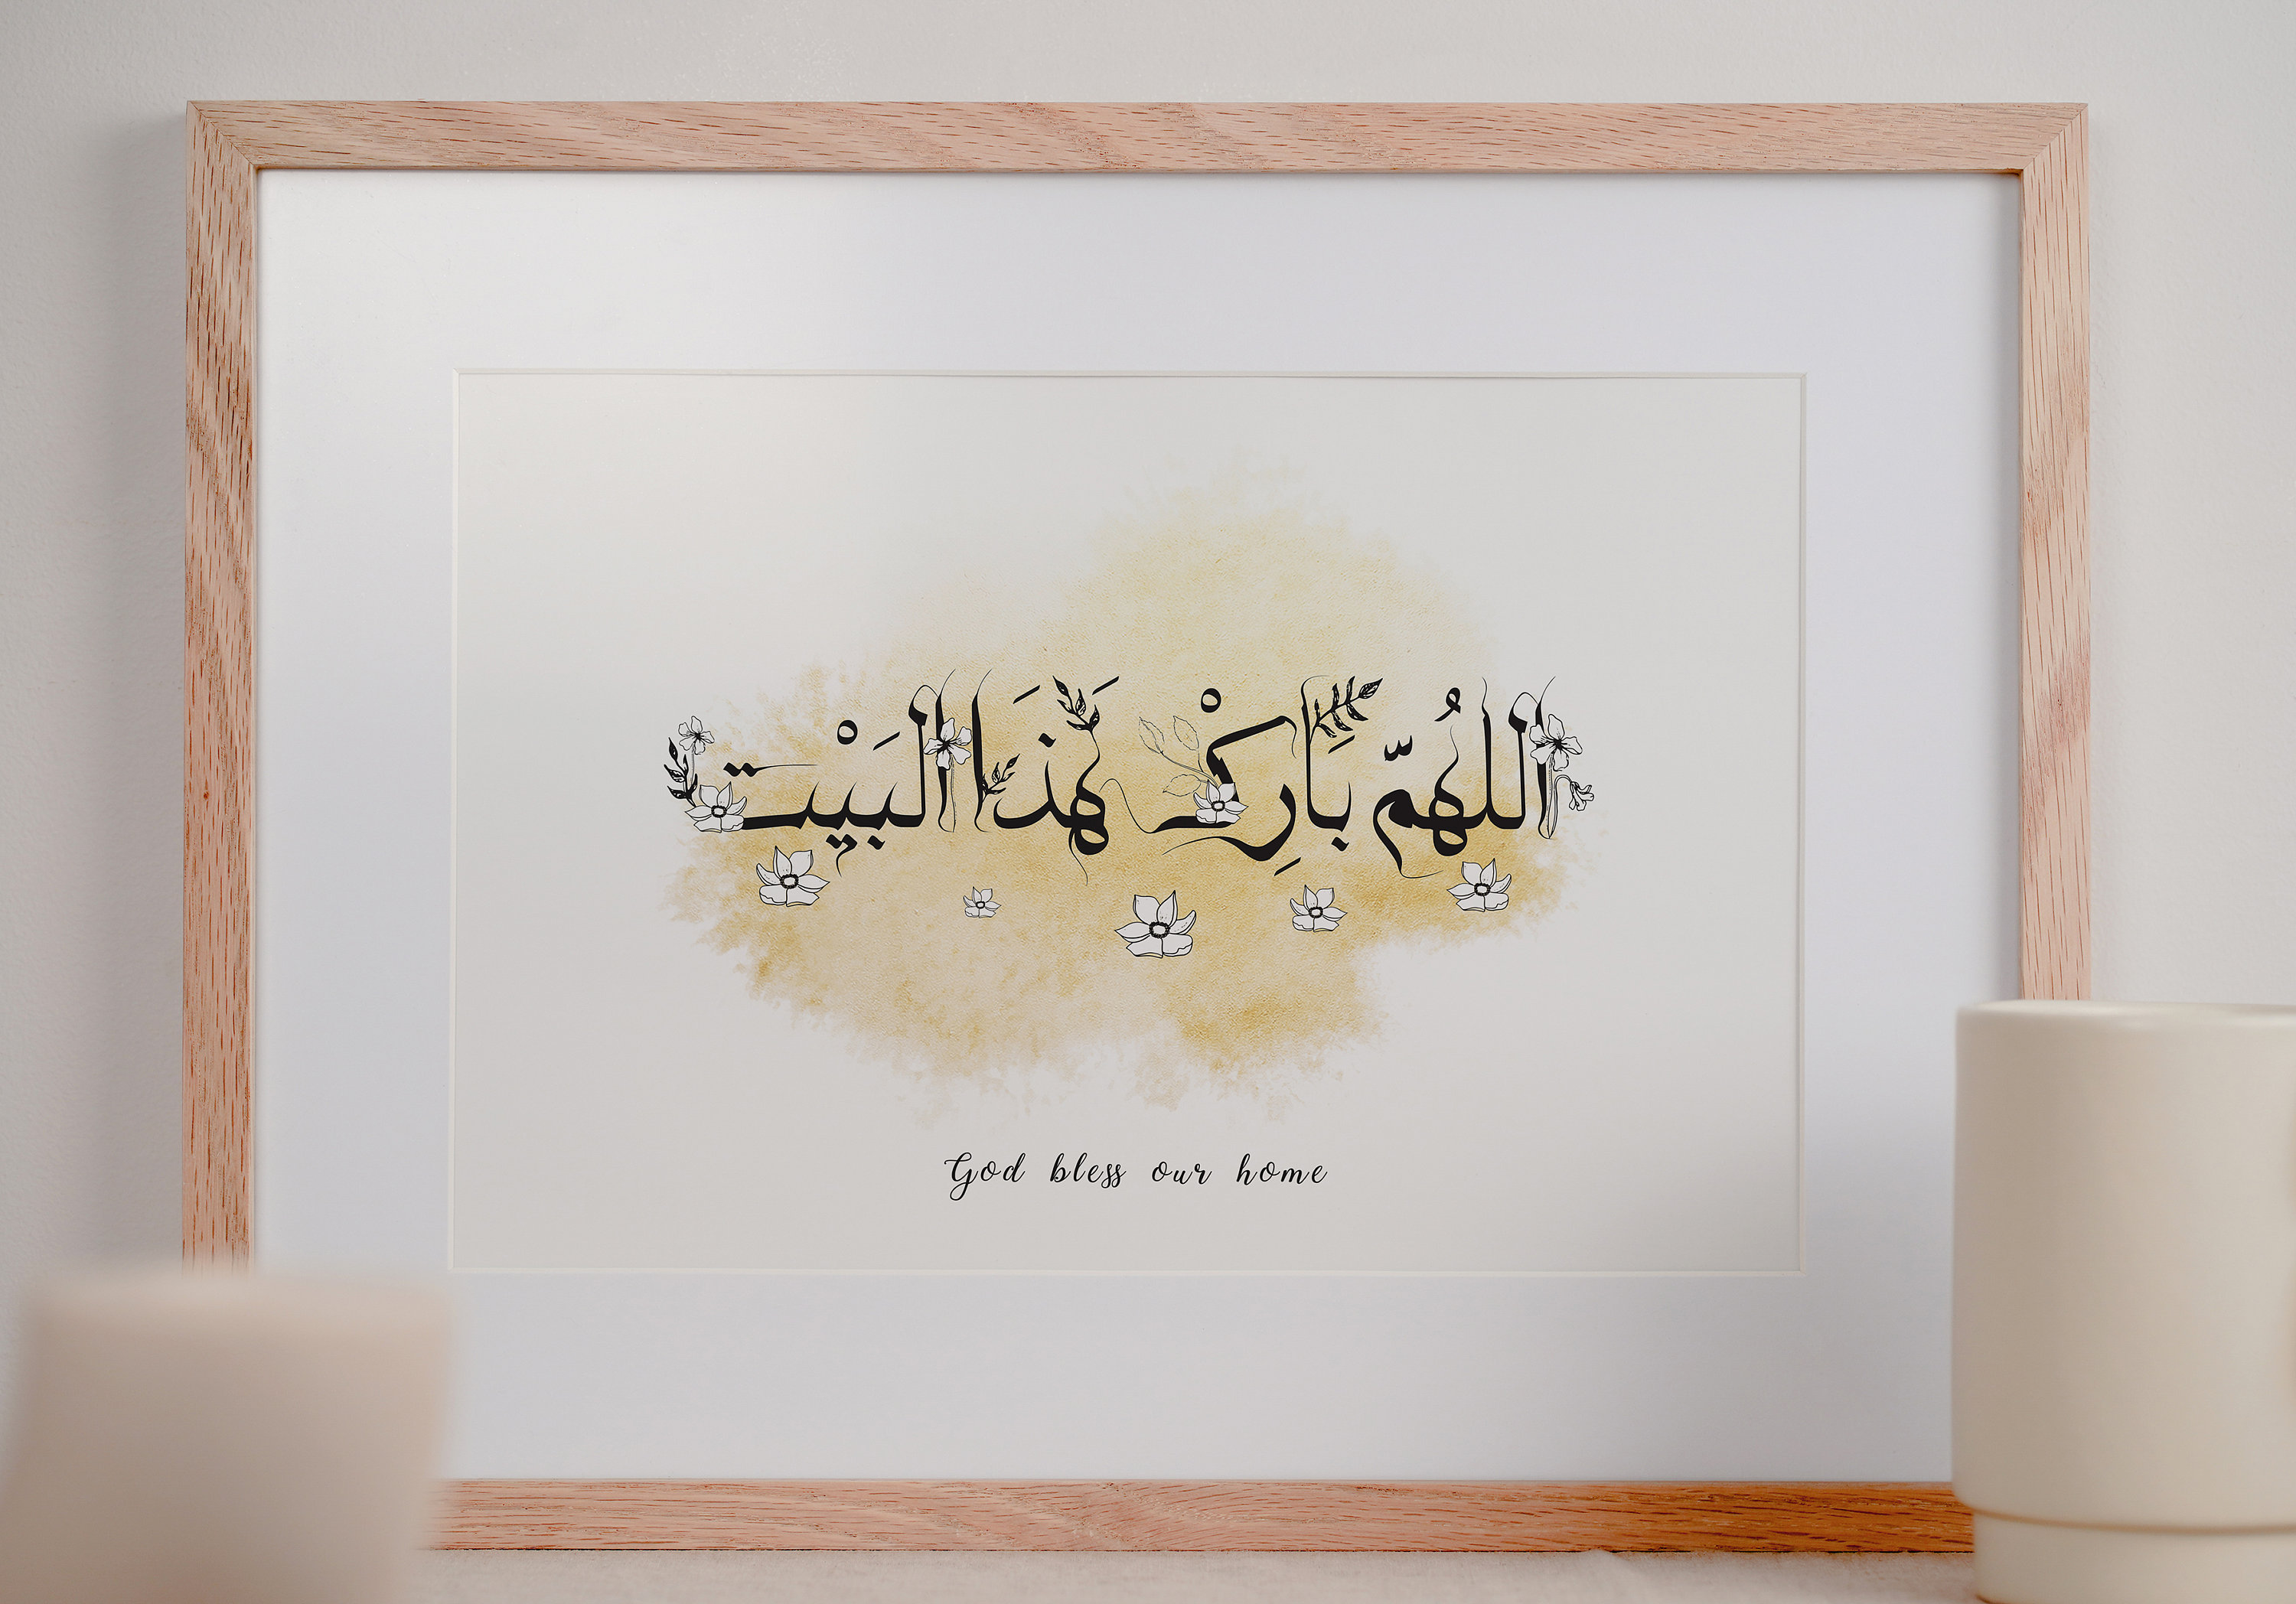 اللهُمّ بَارِكْ هَذَا البَيْت
God bless our home